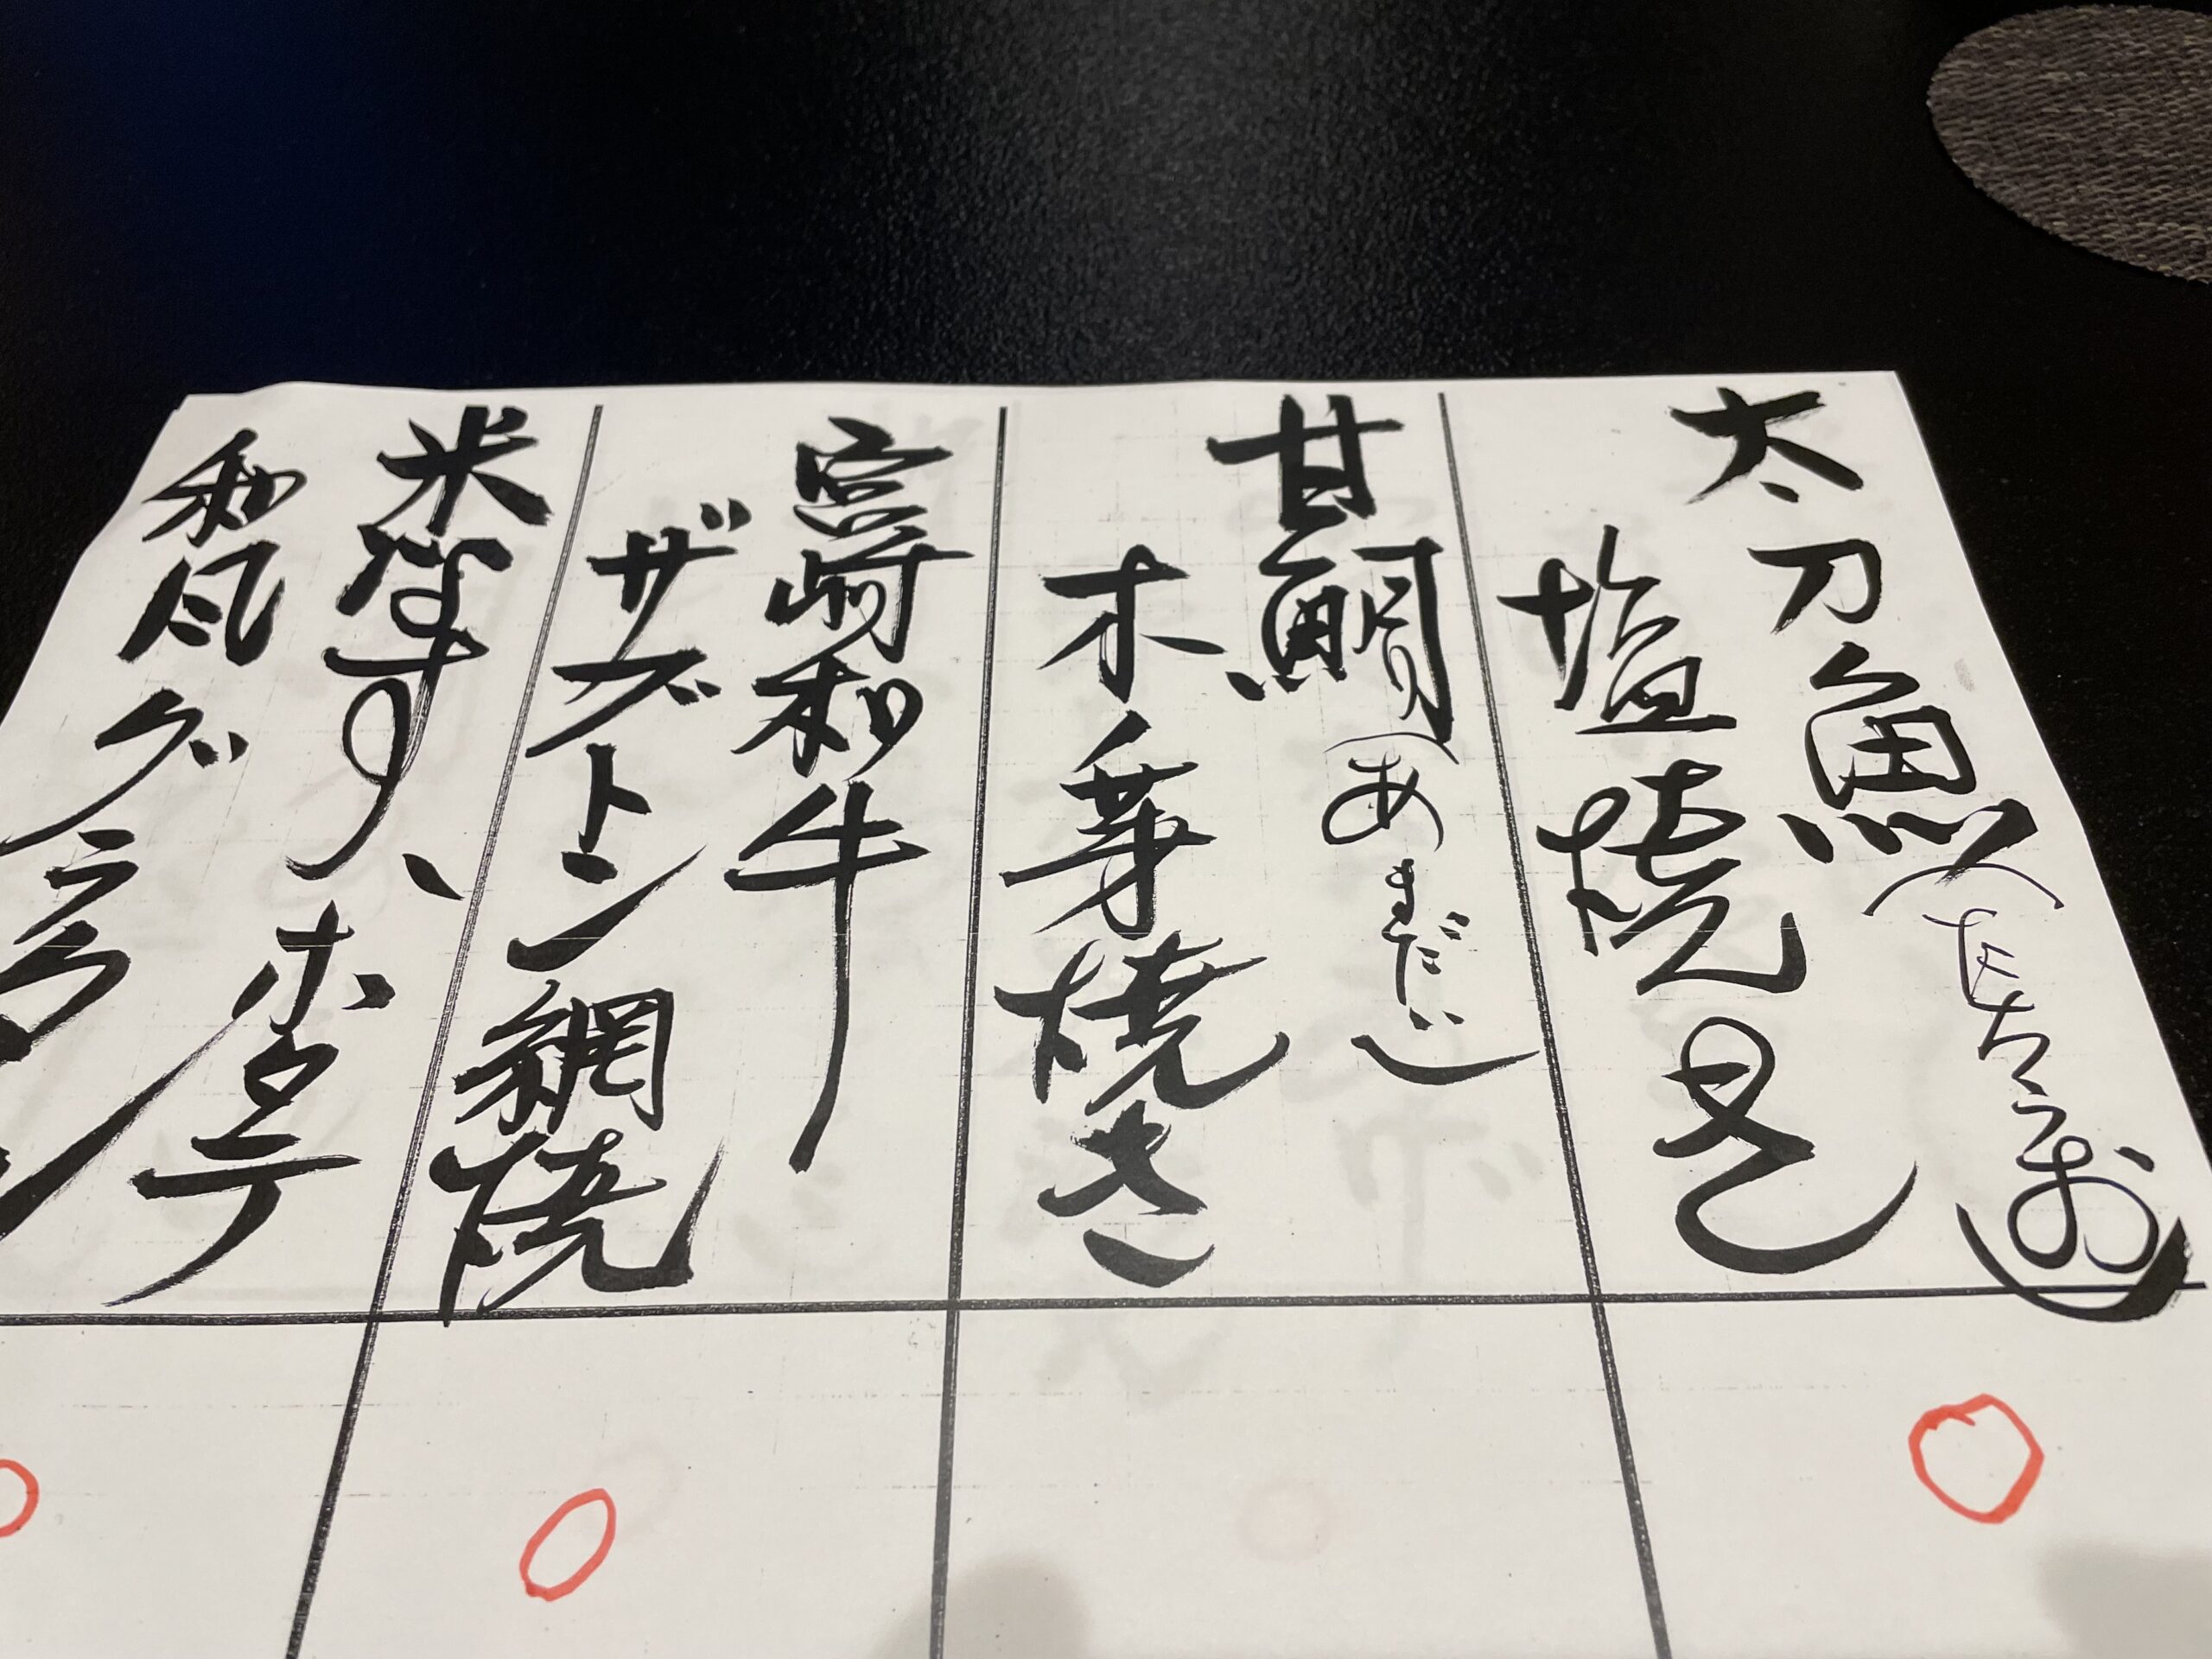 太刀魚(たちうお)
塩焼き
甘鯛(あまだい)
木の芽焼き
宮崎和牛
ザブトン網焼
米なす、ホタテ
和風グラタン